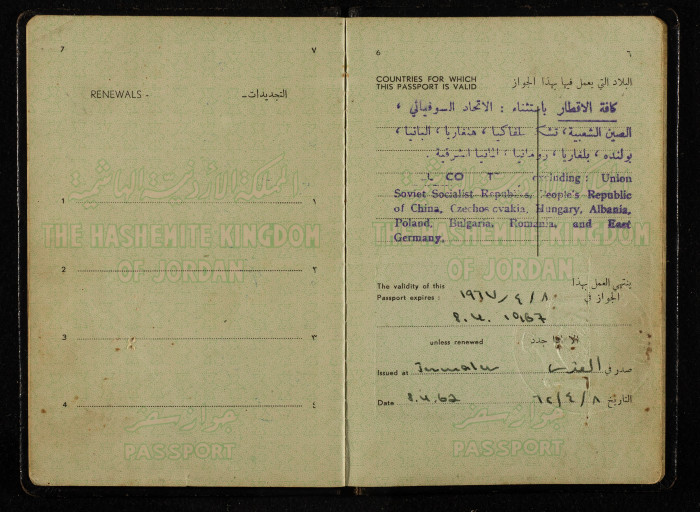 ٧
7
التجديدات -
RENEWALS -
المملكة الأردنية الهاشمية
THE HASHEMITE KINGDOM
OF JORDAN
1 ١
2 ٢
3 ٣
4 ٤
جواز سفر
PASSPORT
6 ٦
COUNTRIES FOR WHICH
THIS PASSPORT IS VALID
البلاد التي يعمل فيها بهذا الجواز
كافة الاقطار باستثناء : الاتحاد السوفياتي ،
الصين الشعبية، ، هنغاريا ، البانيا ،
بولنده ، بلغاريا ، رومانيا ، المانيا الشرقية .
excluding : Union
Soviet Socialist Republics, People's Republic
of China, Czechoslovakia, Hungary, Albania,
Poland, Bulgaria, Romania, and East
Germany.
THE HASHEMITE KINGDOM
OF JORDAN
The validity of this
Passport expires :
ينتهي العمل بهذا
الجواز في
١٩٦٧/٤/٨
8.4. 1967
unless renewed
الا اذا جدد
Issued at
صدر في القدس
Date 8.4.62
التاريخ ٦٢/٤/٨
جواز سفر
PASSPORT